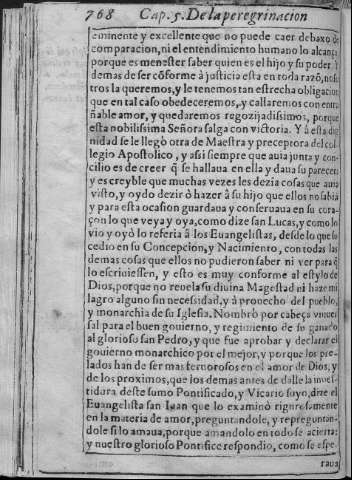 768 Cap. 5. De la peregrinacion
eminente y excellente que no puede caer debaxo de
comparacion, ni el entendimiento humano lo alcança
porque es menester saber quien es el hijo y su poder y
demas de ser cõforme à justicia esta en toda razõ, noso
tros la queremos, y le tenemos tan estrecha obligacion
que en tal caso obedeceremos, y callaremos con entra
ñable amor, y quedaremos regozijadissimos, porque
esta nobilissima Señora salga con victoria. Y à esta dig
nidad se le llegò otra de Maestra y preceptora del col
legio Apostolico, y assi siempre que auia junta y con
cilio es de creer q̃ se hallaua en ella y daua su parecer
y es creyble que muchas vezes les dezia cosas que auia
visto, y oydo dezir ò hazer à su hijo que ellos no sabiã
y para esta ocasion guardaua y conseruaua en su cora
çon lo que veya y oya, como dize san Lucas, y como lo
vio y oyò lo referia à los Euangelistas, desde lo que su
cedio en su Concepcion, y Nacimiento, con todas las
demas cosas que ellos no pudieron saber ni ver para q̃
lo escriuiessen, y esto es muy conforme al estylo de
Dios, porque no reuela su diuina Magestad ni haze mi
lagro alguno sin necessidad, y à prouecho del pueblo,
y monarchia de su Iglesia. Nombrò por cabeça vniuer
sal para el buen gouierno, y regimiento de su ganado
al glorioso san Pedro, y que fue aprobar y declarar el
gouierno monarchico por el mejor, y porque los pre
lados han de ser mas temorosos en el amor de Dios, y
de los proximos, que los demas antes de dalle la inues
tidura deste sumo Pontificado, y Vicario suyo, dize el
Euangelista san Iuan que lo examinò rigurosamente
en la materia de amor, preguntandole, y repreguntan
dole si lo amaua, porque amandolo en todo se acierta:
y nuestro glorioso Pontifice respondio, como se espe
raua